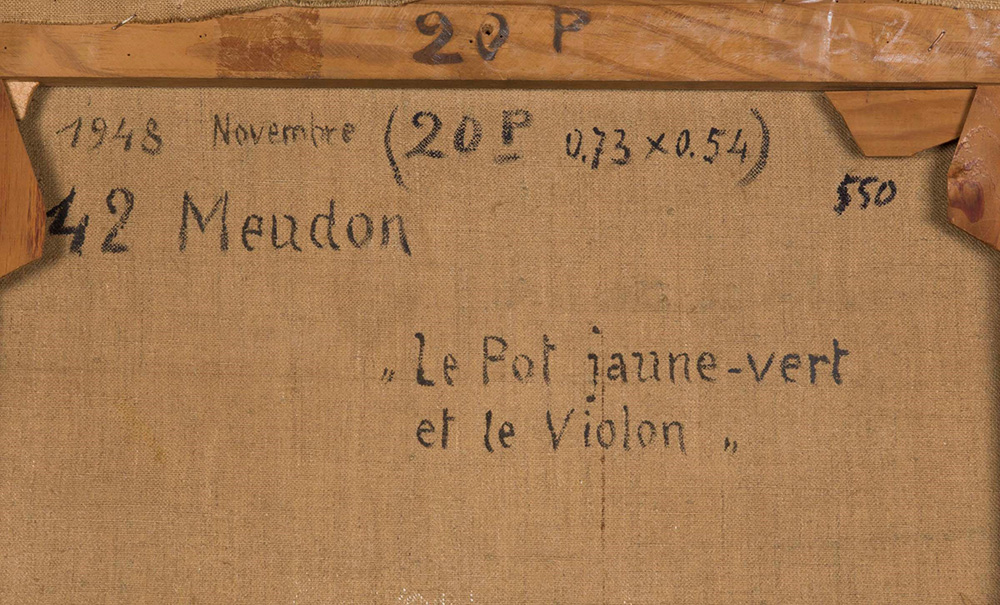 20 P
1948 Novembre (20 P 0.73 x 0.54)
550
42 Meudon
„ Le Pot jaune-vert
et le Violon „